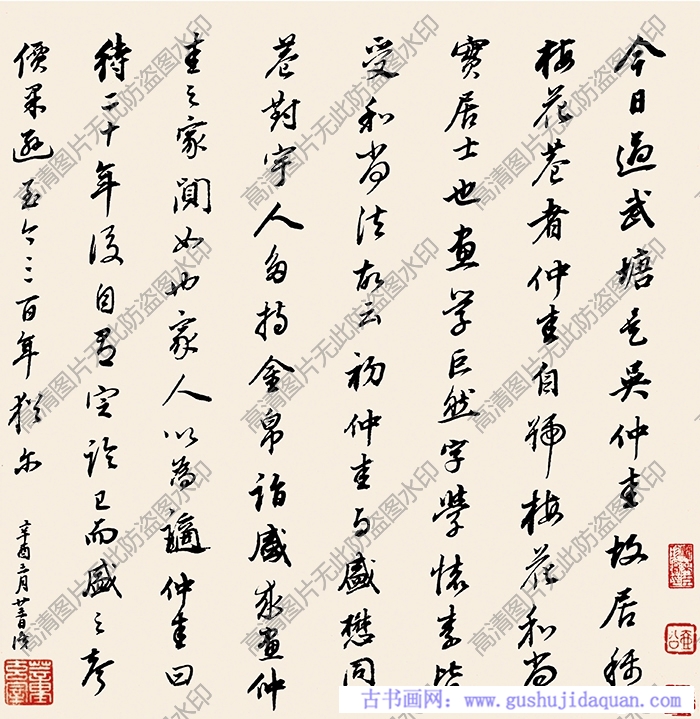 今日過武塘是吳仲圭故居稱
梅花菴者仲圭自號梅花和尚
實居士也畫學巨然字學懷素皆
受和尚法故云初仲圭與盛懋同
菴對宇人多持金帛詣盛求畫仲
圭之家閴如也家人以為適仲圭曰
待二十年後自有定論已而盛之声
價果遜至今三百年猶爾
辛酉三月廿三日
高清图片无此防盗图水印
古书画网：www.gushujidaquan.com